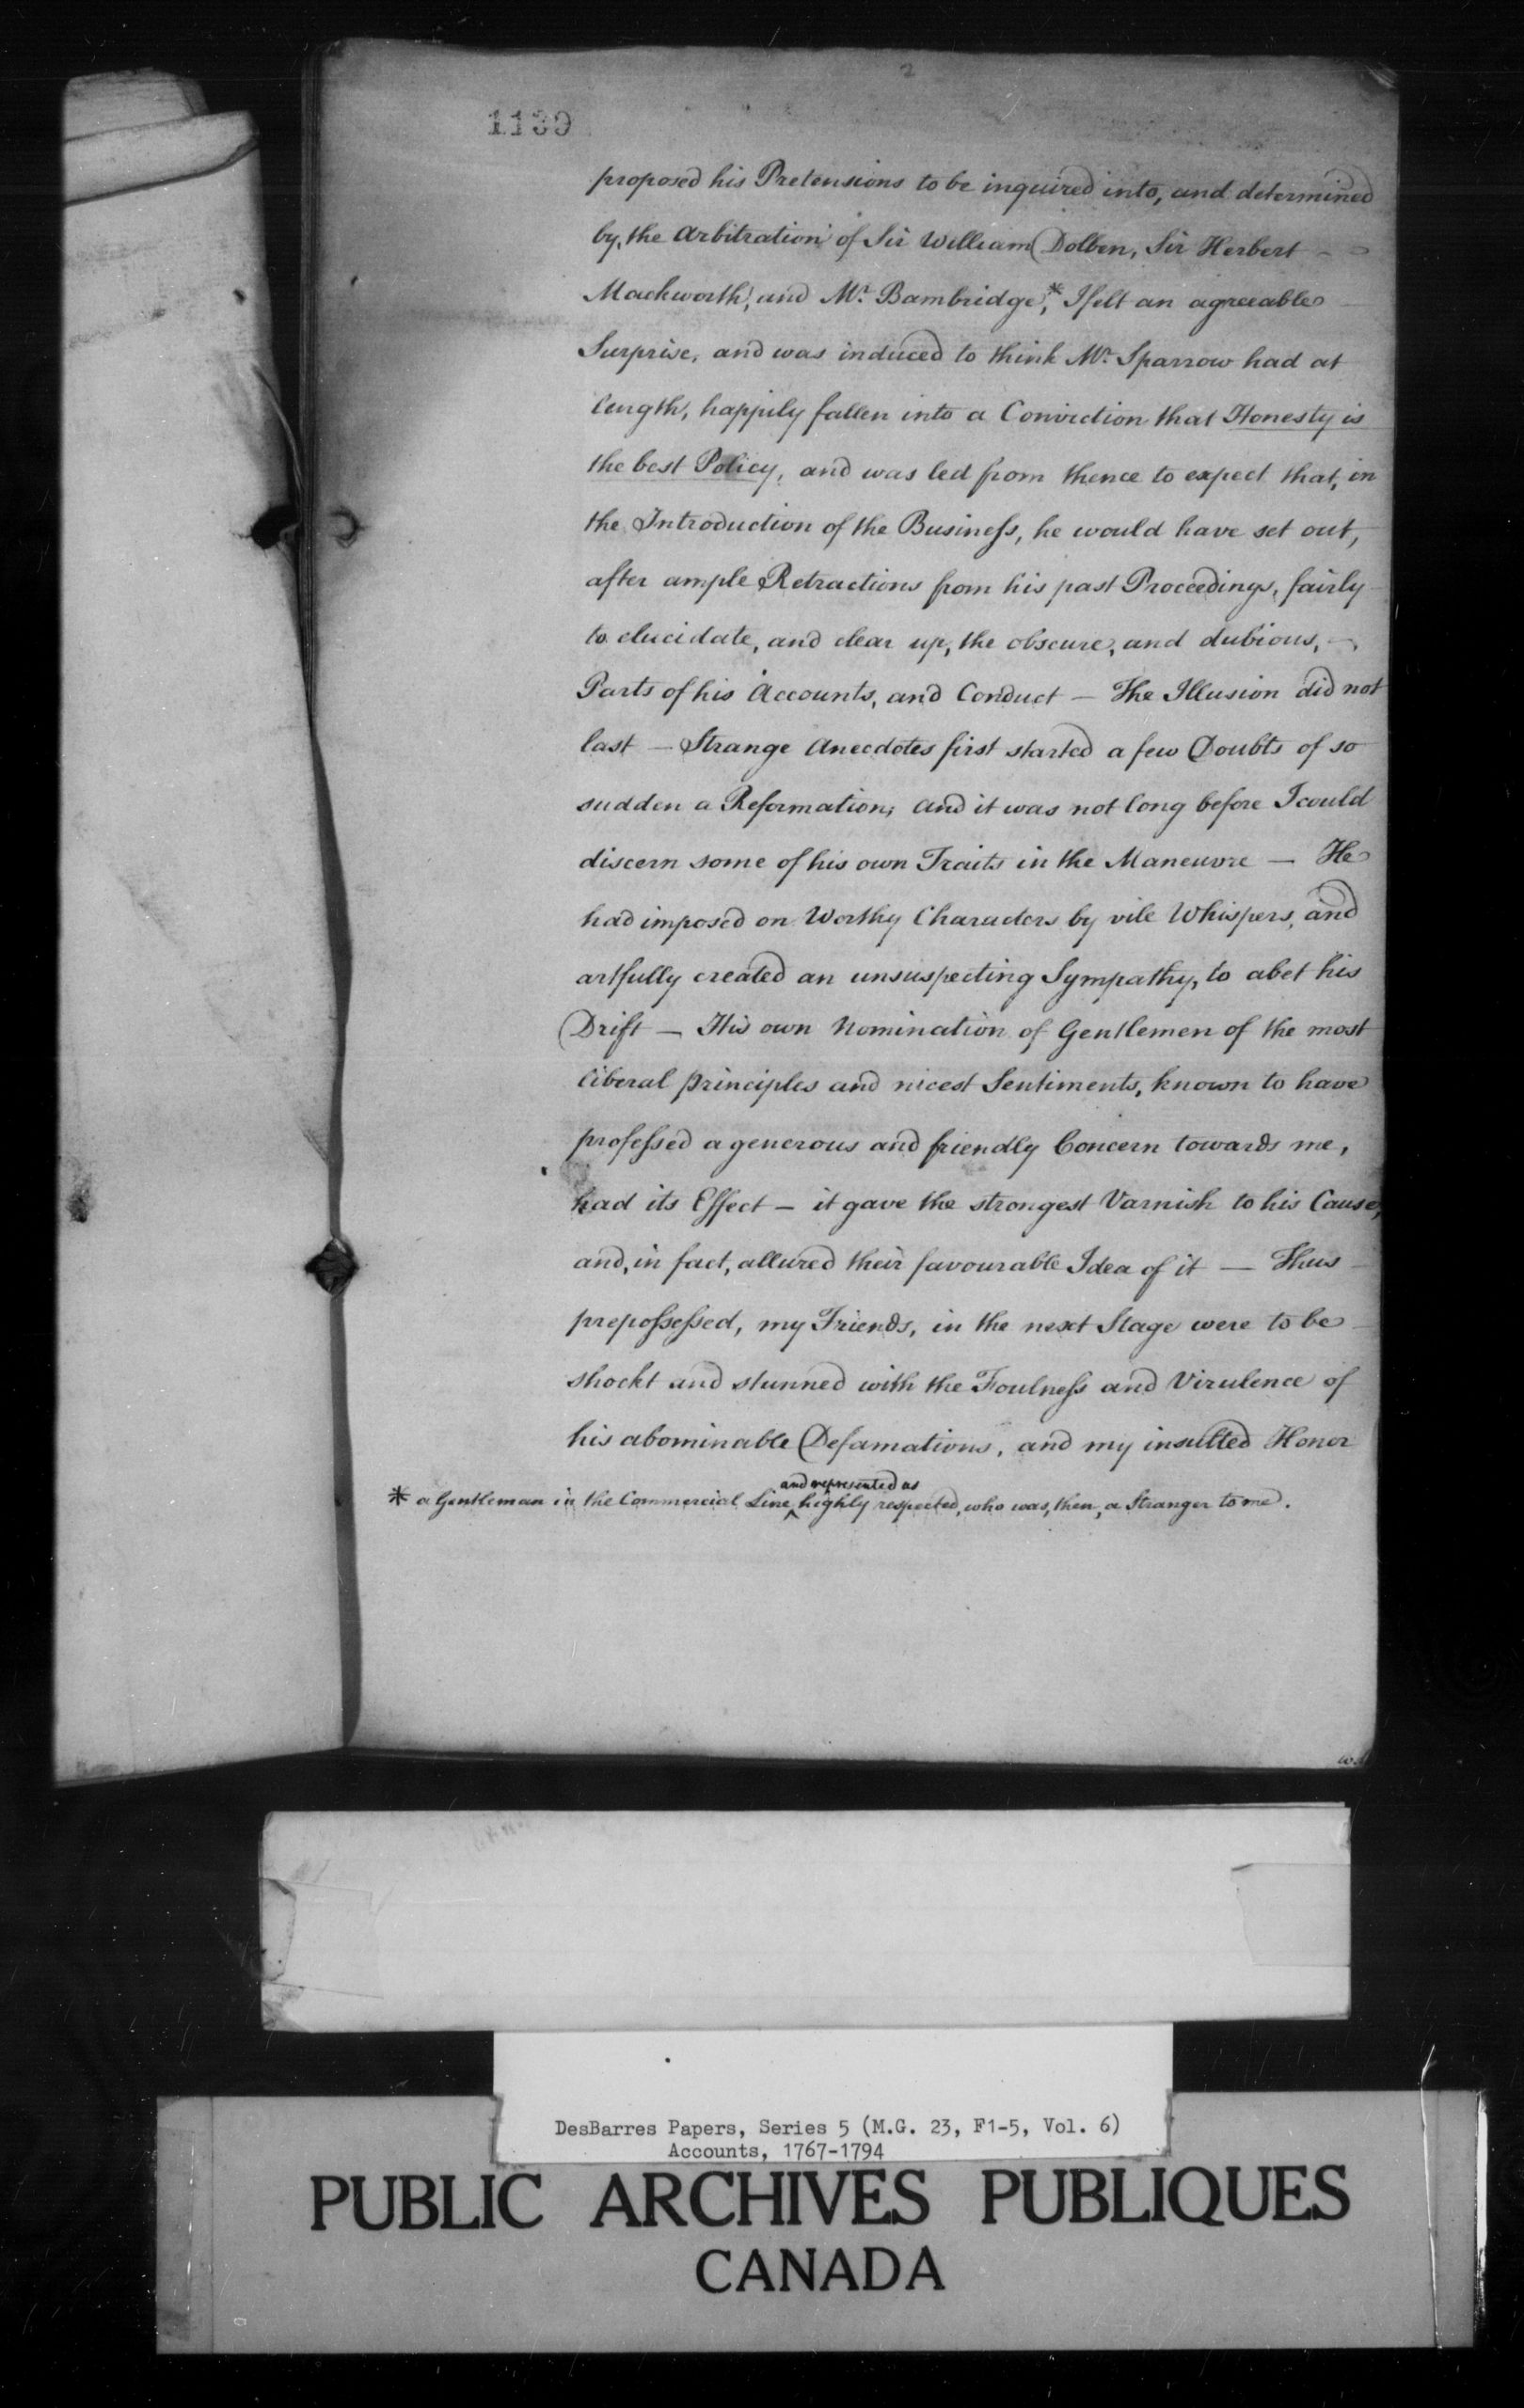 2
1139
proposed his Pretensions to be inquired into, and determined
by, the Arbitration of Sir William Dolben, Sir Herbert
Mackworth, and Mr. Bambridge,* I felt an agreeable
Surprise, and was induced to think Mr. Sparrow had at
length, happily fallen into a Conviction that Honesty is
the best Policy, and was led from thence to expect that, in
the Introduction of the Businefs, he would have set out,
after ample Retractions from his past Proceedings, fairly
to elucidate, and clear up, the obscure, and dubious,
Parts of his Accounts, and Conduct — The Illusion did not
last — Strange Anecdotes first started a few Doubts of so
sudden a Reformation; and it was not long before I could
discern some of his own Traits in the Maneuvre — He
had imposed on Worthy Characters by vile Whispers, and
artfully created an unsuspecting Sympathy, to abet his
Drift — His own Nomination of Gentlemen of the most
liberal principles and nicest Sentiments, known to have
profefsed a generous and friendly Concern towards me,
had its Effect — it gave the strongest Varnish to his Cause,
and, in fact, allured their favourable Idea of it — Thus
prepofsefsed, my Friends, in the next Stage were to be
shockt and stunned with the Foulnefs and Virulence of
his abominable Defamations, and my insulted Honor
and represented as
* a Gentleman in the Commercial Line ‸ highly respected, who was, then, a Stranger to me.
DesBarres Papers, Series 5 (M.G. 23, F1-5, Vol. 6)
Accounts, 1767-1794
PUBLIC ARCHIVES PUBLIQUES
CANADA